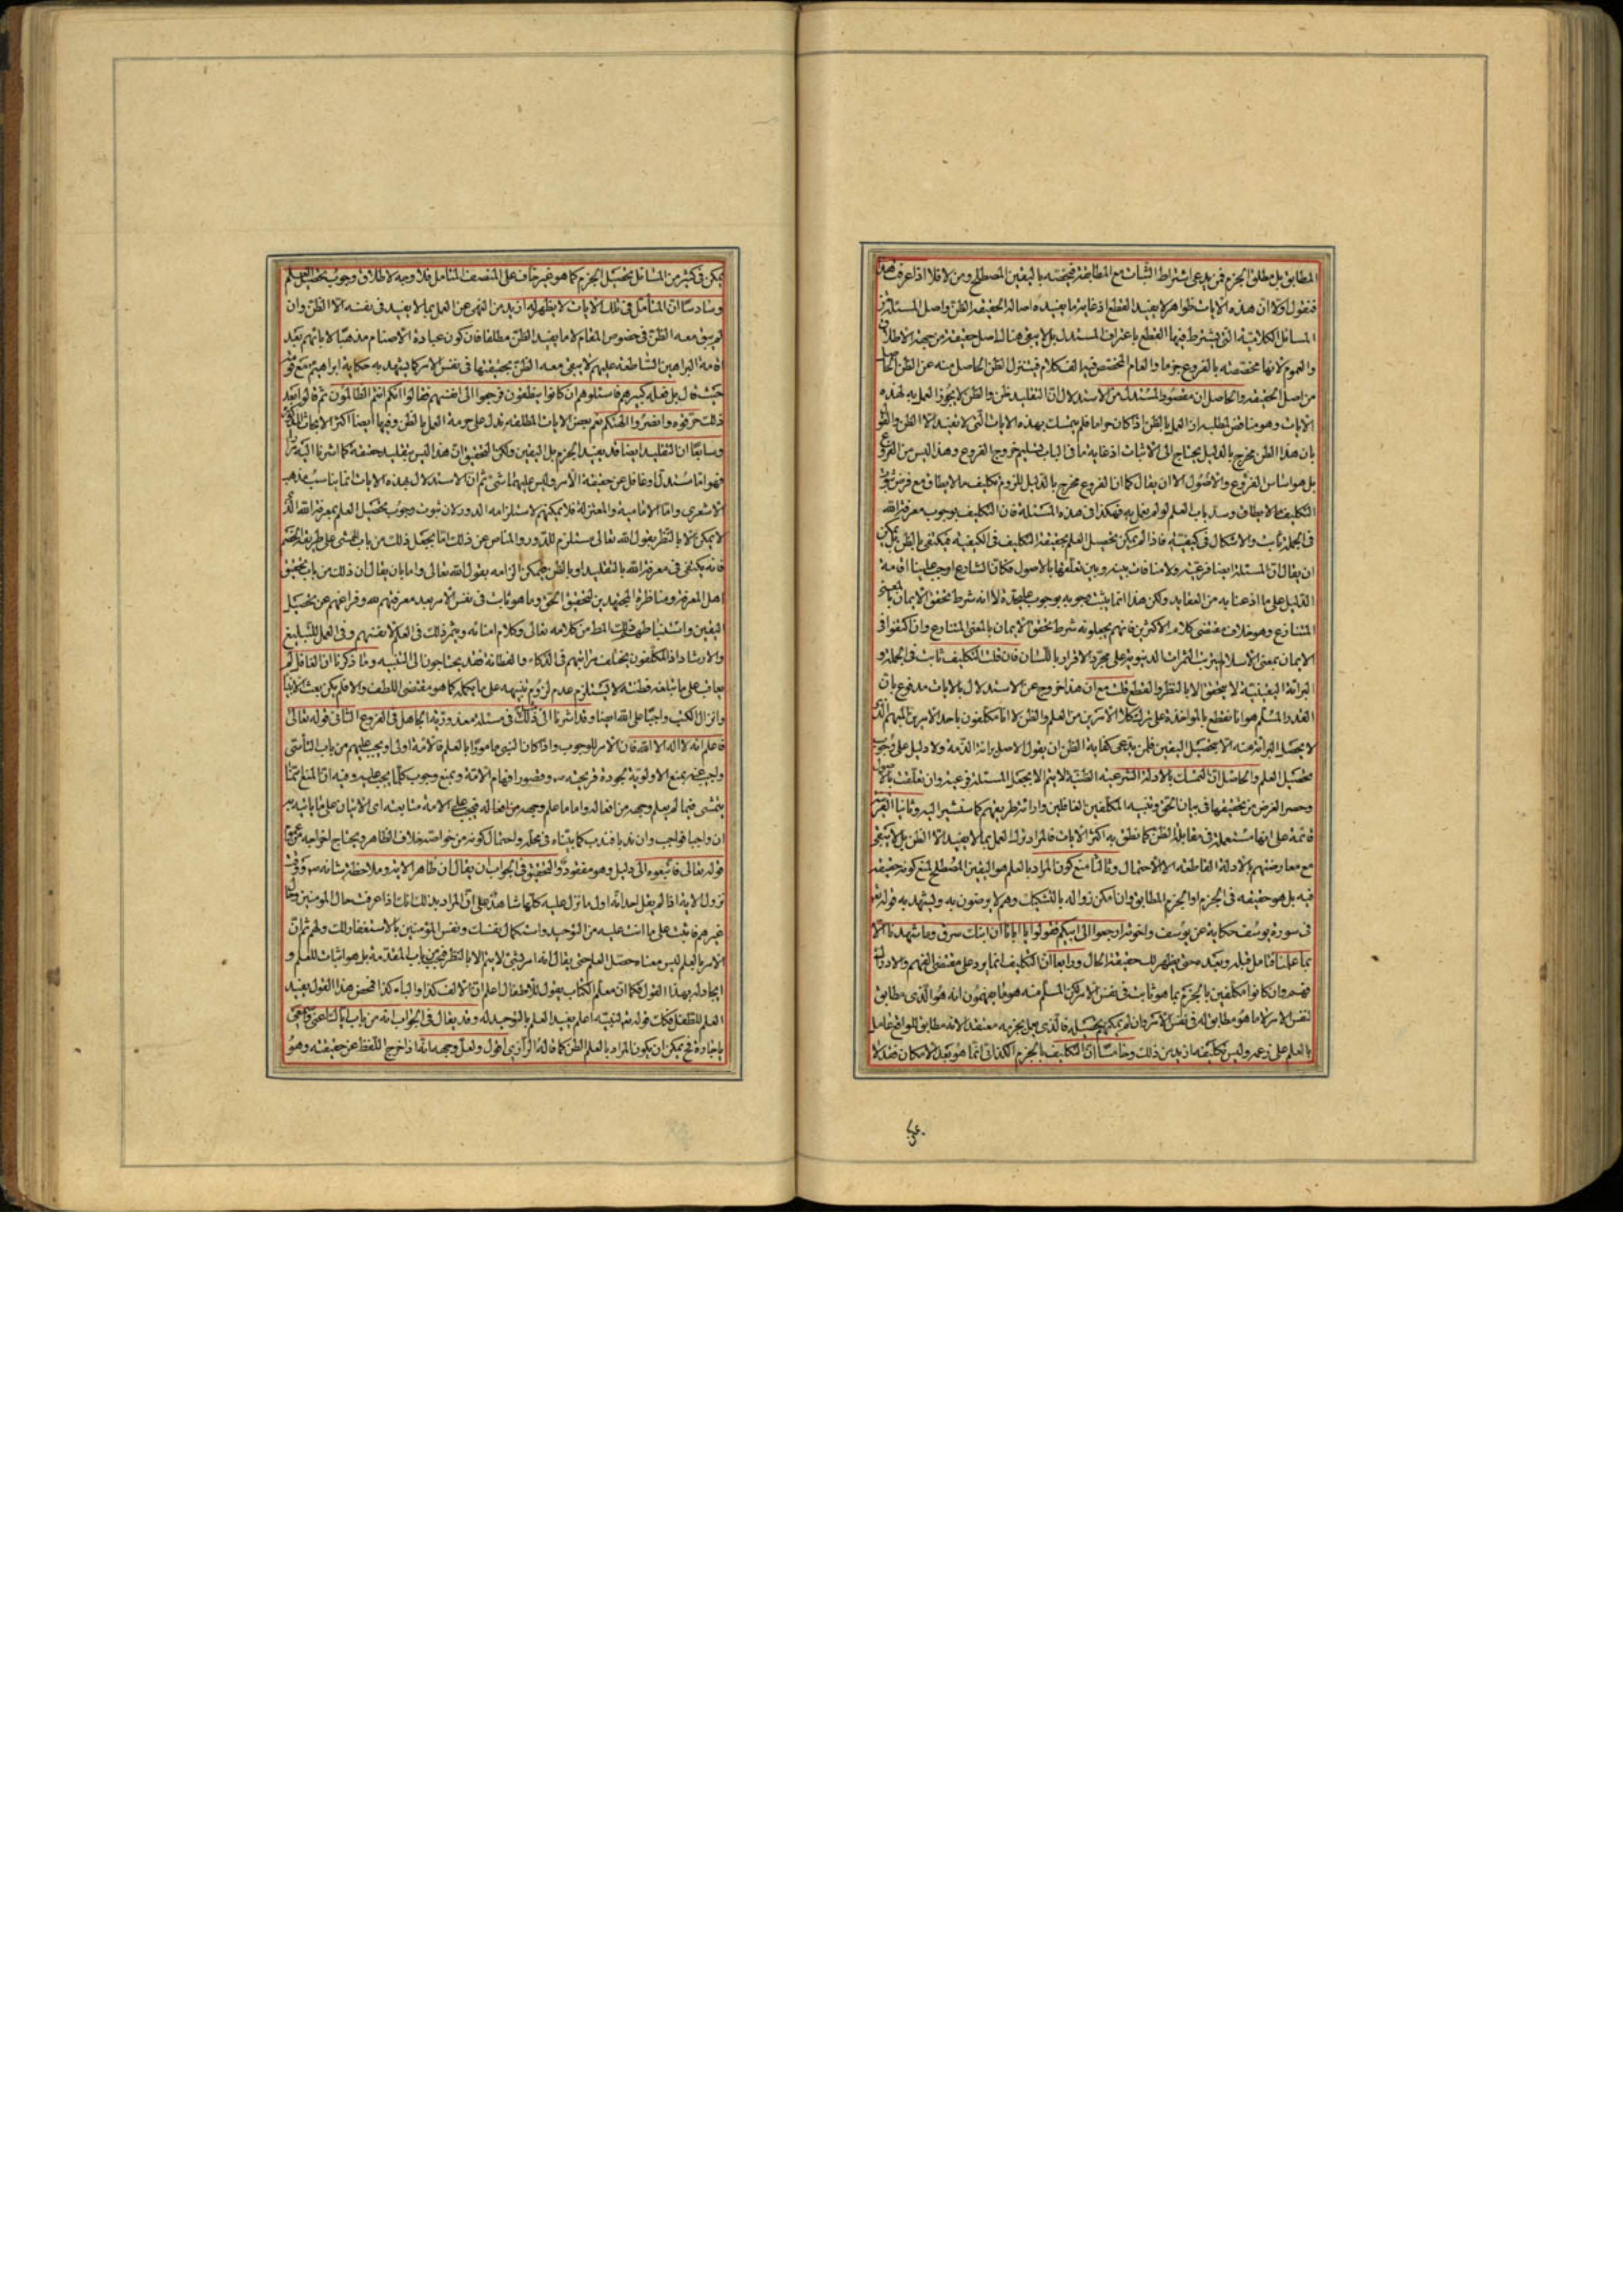 المطابق بل مطلق الجزم فمن يدعى اشتراط الثبات مع المطابقة فيخصه باليقين المصطلح ومن لا فلا اذا عرفت هذا
فنقول اولا ان هذه الايات ظواهر لا يفيد القطع اذ غاية ما يفيده اصالة الحقيقة الظن واصل المسئلة من
المسائل الكلامية التى يشترط فيها القطع باعتراف المستدل بل لا يبقى هنا اصل حقيقة من جهة الاطلاق
والعموم لانها مخصصة بالفروع جزما والعام المخصص فيه الف كلام فيتنزل الظن الحاصل منه عن الظن الحاصل
من اصل الحقيقة والحاصل ان مقصود المستدل من الاستدلال ان التقليد ظن والظن لا يجوز العمل به لهذه
الايات وهو مناقض لمطلبه ان العمل بالظن اذا كان حراما فلم يتمسك بهذه الايات التى لا تفيد الا الظن والقول
بان هذا الظن مخرج بالدليل يحتاج الى الاثبات اذ غاية ما فى الباب تسليم خروج الفروع وهذا ليس من الفروع
بل هو اساس الفروع والاصول الا ان يقال كما ان الفروع مخرج بالدليل للزوم تكليف ما لا يطاق مع فرض بقاء
التكليف وسد باب العلم لو لم يعمل به فهكذا فى هذه المسئلة فان التكليف بوجوب معرفة الله
فى الجملة ثابت والاشكال فى كيفيته فاذا لم يمكن تحصيل العلم بحقيقة التكليف فى الكيفية فيكتفى بالظن بل يمكن
ان يقال ان المسئلة ايضا فرعية ولا منافات بينه وبين تعلقها بالاصول فكان الشارع اوجب علينا اقامة
الدليل على ما اذعنا به من العقايد ولكن هذا انما يثبت وجوبه بوجوب عليحدة لا انه شرط تحقق الايمان بالمعنى
المتنازع وهو خلاف مقتضى كلام الاكثرين فانهم يجعلونه شرط تحقق الايمان بالمعنى المتنازع وان اكتفوا فى
الايمان بمعنى الاسلام بترتب الثمرات الدنيوية على مجرد الاقرار باللسان فان قلت التكليف ثابت فى الجملة و
البرائة اليقينية لا يتحقق الا بالنظر والقطع قلت مع ان هذا خروج عن الاستدلال بالايات مدفوع بان
القدر المسلم هو انا نقطع بالمواخذة على ترك كلا الامرين من العلم والظن لا انا مكلفون باحد الامرين المبهم الذى
لا يحصل البرائة منه الا بتحصيل اليقين فلمن يدعى كفاية الظن ان يقول الاصل برائة الذمة ولا دليل على وجوب
تحصيل العلم والحاصل ان التمسك بالادلة الشرعية الظنية لا يتم الا بجعل المسئلة فرعية وان تعلقت بالاصول
وحصر الغرض من تحقيقها فى بيان الحق وتنبيه المكلفين الغافلين واراءة طريقهم كما سنشير اليه وثانيا القرينة
قائمة على انها مستعملة فى مقابل الظن كما نطق به اكثر الايات فالمراد ترك العمل بما لا يفيد الا الظن بل لا يبقى
مع معارضتهم الادلة القاطعة الا الاحتمال وثالثا منع كون المراد بالعلم هو اليقين المصطلح لمنع كونه حقيقة
فيه بل هو حقيقة فى الجزم او الجزم المطابق وان امكن زواله بالتشكيك وهم لا يرضون به وليشهد به قوله تعالى
فى سورة يوسف حكاية عن يوسف واخوته ارجعوا الى ابيكم فقولوا يا ابانا ان ابنك سرق وما شهدنا الا
بما علمنا فتامل قبله وبعده حتى يظهر لك حقيقة الحال ورابعا ان التكليف انما يرد على مقتضى الفهم والادراك
فهم وان كانوا مكلفين بالجزم بما هو ثابت فى نفس الامر لكن المسلم منه هو ما يفهمون انه هو الذى مطابق
لنفس الامر لا ما هو مطابق له فى نفس الامر وان لم يمكنهم تحصيله فالذى حصل جزمه معتقدا لانه مطابق للواقع عامل
بالعلم على زعمه وليس تكليفه ازيد من ذلك وخامسا ان التكليف بالجزم الكذائى انما هو بعد الامكان فقد لا
يمكن فى كثير من المسائل تحصيل الجزم كما هو غير خاف على المنصف المتامل فلا وجه لاطلاق وجوب تحصيل العلم
وسادسا ان المتأمل فى تلك الايات لا يظهر له ازيد من النهى عن العمل بما لا يفيد فى نفسه الا الظن وان
لم يبق معه الظن فى خصوص المقام لا ما يفيد الظن مطلقا فان كون عبادة الاصنام مذهبا لابائهم بعد
اقامة البراهين الساطعة عليهم لا يبقى معه الظن بحقيتها فى نفس الامر كما يشهد به حكاية ابراهيم مع قومه
حيث قال بل فعله كبيرهم فاسئلوهم ان كانوا ينطقون فرجعوا الى انفسهم فقالوا انكم انتم الظالمون ثم قالوا بعد
ذلك حرقوه وانصروا الهتكم نعم بعض الايات المطلقة تدل على حرمة العمل بالظن وفيها ايضا اكثر الابحاث المذكورة
وسابعا ان التقليد ايضا قد يفيد الجزم بل اليقين ولكن التحقيق ان هذا ليس بتقليد حقيقة كما اشرنا اليه مرارا
فهو اما مستدل او غافل عن حقيقة الامر وليس عليهما شئ ثم ان الاستدلال بهذه الايات انما يناسب مذهب
الاشعرى واما الامامية والمعتزلة فلا يمكنهم لاستلزامه الدور لان ثبوت وجوب تحصيل العلم بمعرفة الله الذى
لا يمكن الا بالنظر بقول الله تعالى مستلزم للدور والمناص عن ذلك اما بجعل ذلك من باب المشى على طريقة الخصم
فانه يكتفى فى معرفة الله بالتقليد او بالظن فيمكن الزامه بقول الله تعالى واما بان يقال ان ذلك من باب تحقيق
اهل المعرفة ومناظرة المجتهدين لتحقيق الحق وما هو ثابت فى نفس الامر بعد معرفتهم به وفراغهم عن تحصيل
اليقين واستنباطهم ذلك المط من كلامه تعالى وكلام امنائه ويثمر ذلك فى العلم لانفسهم وفى العمل للتبليغ
والارشاد اذ المكلفون يختلف مراتبهم فى الذكاء والفطانة فقد يحتاجون الى التنبيه وما ذكرنا ان الغافل لم
يعاقب على ما لم تبلغه فطنته لا يستلزم عدم لزوم تنبيهه على ما يكمله كما هو مقتضى اللطف والا فلم يكن بعث الانبياء
وانزال الكتب واجبا على الله ايضا وقد اشرنا الى ذلك فى مسئلة معذورية الجاهل فى الفروع الثانى قوله تعالى
فاعلم انه لا اله الا الله فان الامر للوجوب واذا كان النبى مامورا بالعلم فالامة اولى او يجب عليهم من باب التأسى
واجيب عنه بمنع الاولوية لجودة قريحته ص وقصور افهام الامة وبمنع وجوب كلما يجب عليه وفيه ان المنع انما
يتمشى فيما لم يعلم وجهه من افعاله واما ما علم وجهه من افعاله فيجب على الامة متابعته اى الاتيان على ما ياتى به
ان واجبا فواجب وان ندبا فندب كما بيناه فى محله واحتمال كونه من خواصه خلاف الظاهر ويحتاج اخراجه عن عموم
قوله تعالى فاتبعوه الى دليل وهو مفقود والتحقيق فى الجواب ان يقال ان ظاهر الاية وملاحظة شانه ص ووقت
نزول الاية اذا لم يقل احد انه اول ما نزل عليه كلها شاهد على ان المراد بذلك اذا عرفت حال المؤمنين وحال
غيرهم فاثبت على ما انت عليه من التوحيد واستكمال نفسك ونفس المؤمنين بالاستغفار لك ولهم ثم ان
الامر بالعلم ليس معناه حصل العلم حتى يقال انه امر بشئ لا يتم الا بالنظر فيجب من باب المقدمة بل هو اثبات للعلم و
ايجاد له بهذا القول فكما ان معلم الكتاب يقول للاطفال اعلم ان الالف كذا والباء كذا فمحض هذا القول يفيد
العلم للطفل فكك قوله تعالى لنبيه اعلم يفيد العلم بالتوحيد له وقد يقال فى الجواب انه من باب اياك اعنى واسمعى
يا جارة فح يمكن ان يكون المراد بالعلم الظن كما قاله الرازى اقول ولعل وجهه انه اذا خرج اللفظ عن حقيقته وهو